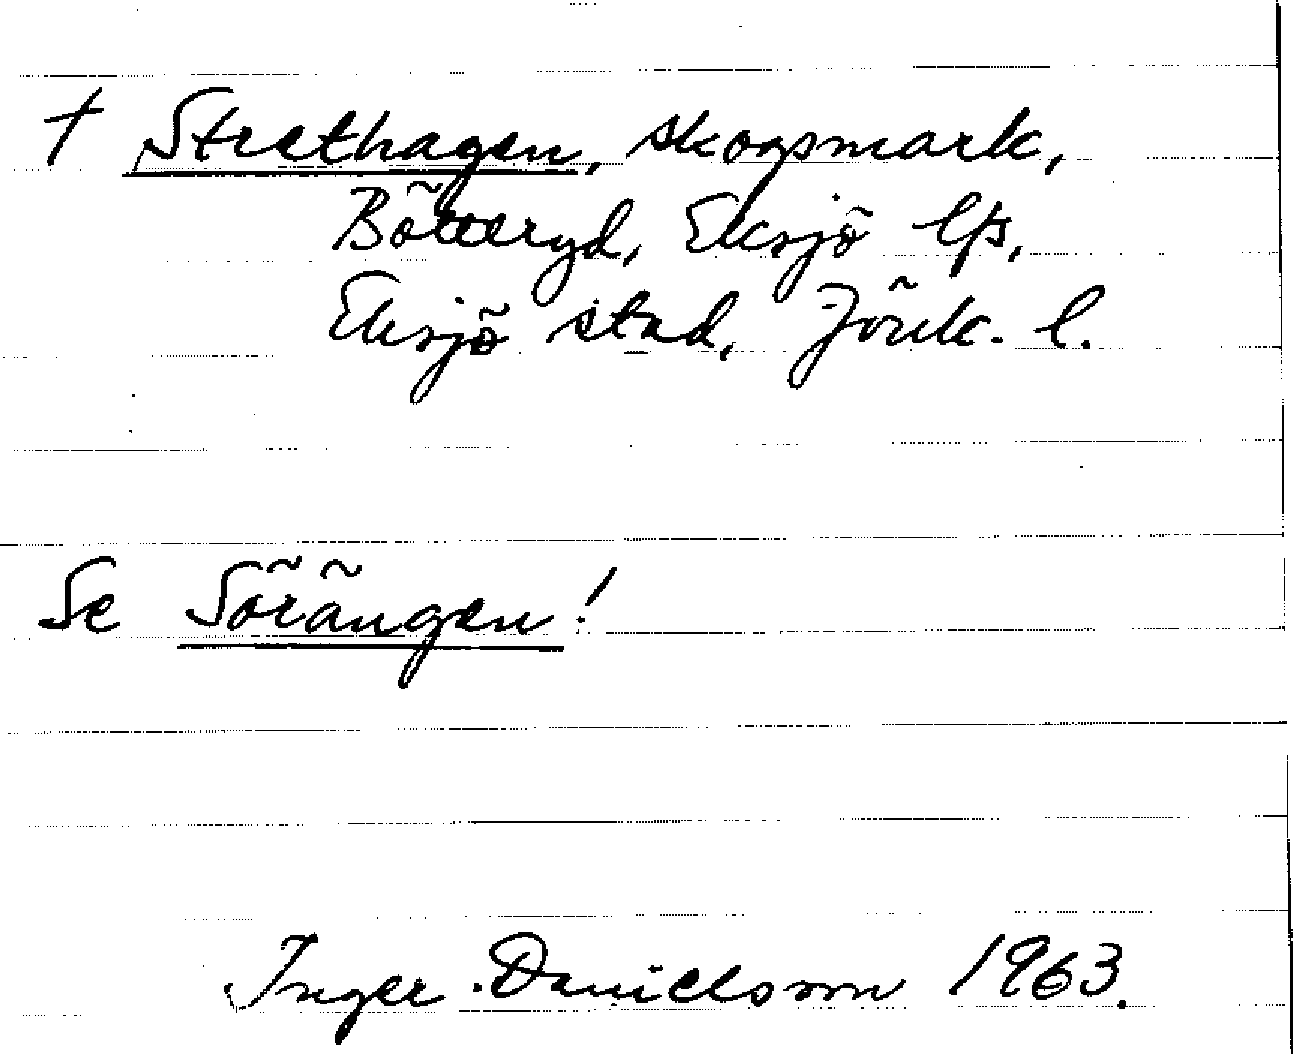 † Strethagen, skogsmark,
Bötteryd, Eksjö lfs,
Eksjö stad, Jönk. l.
Se Sörängen!
Inger Danielsson 1963.